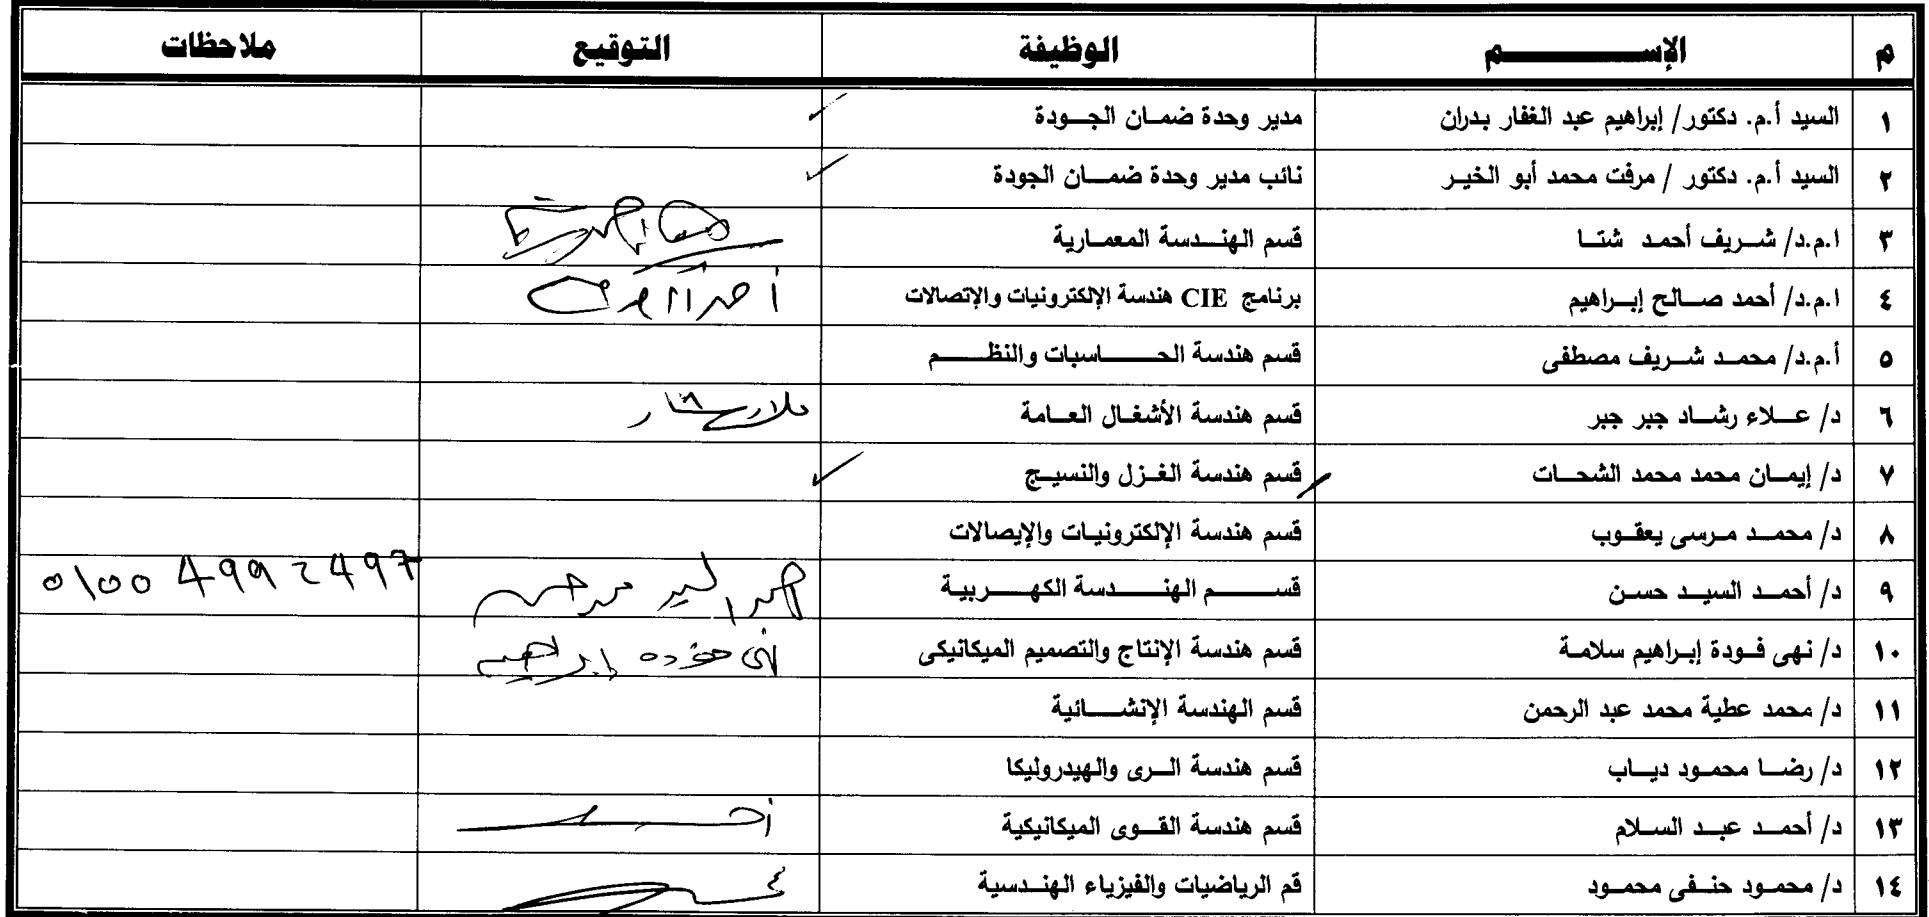 م الإســـــــم الوظيفة التوقيع ملاحظات
١ السيد أ.م. دكتور/ إبراهيم عبد الغفار بدران مدير وحدة ضمان الجودة
٢ السيد أ.م. دكتور / مرفت محمد أبو الخير نائب مدير وحدة ضمان الجودة
٣ ا.م.د/ شريف أحمد شتا قسم الهندسة المعمارية
٤ ا.م.د/ أحمد صالح إبراهيم برنامج CIE هندسة الإلكترونيات والإتصالات
٥ أ.م.د/ محمد شريف مصطفى قسم هندسة الحاسبات والنظم
٦ د/ علاء رشاد جبر جبر قسم هندسة الأشغال العامة
٧ د/ إيمان محمد محمد الشحات قسم هندسة الغزل والنسيج
٨ د/ محمد مرسى يعقوب قسم هندسة الإلكترونيات والإيصالات
٩ د/ أحمد السيد حسن قسم الهندسة الكهربية 01004992497
١٠ د/ نهى فودة إبراهيم سلامة قسم هندسة الإنتاج والتصميم الميكانيكى نهى فوده إبراهيم
١١ د/ محمد عطية محمد عبد الرحمن قسم الهندسة الإنشائية
١٢ د/ رضا محمود دياب قسم هندسة الرى والهيدروليكا
١٣ د/ أحمد عبد السلام قسم هندسة القوى الميكانيكية
١٤ د/ محمود حنفى محمود قم الرياضيات والفيزياء الهندسية